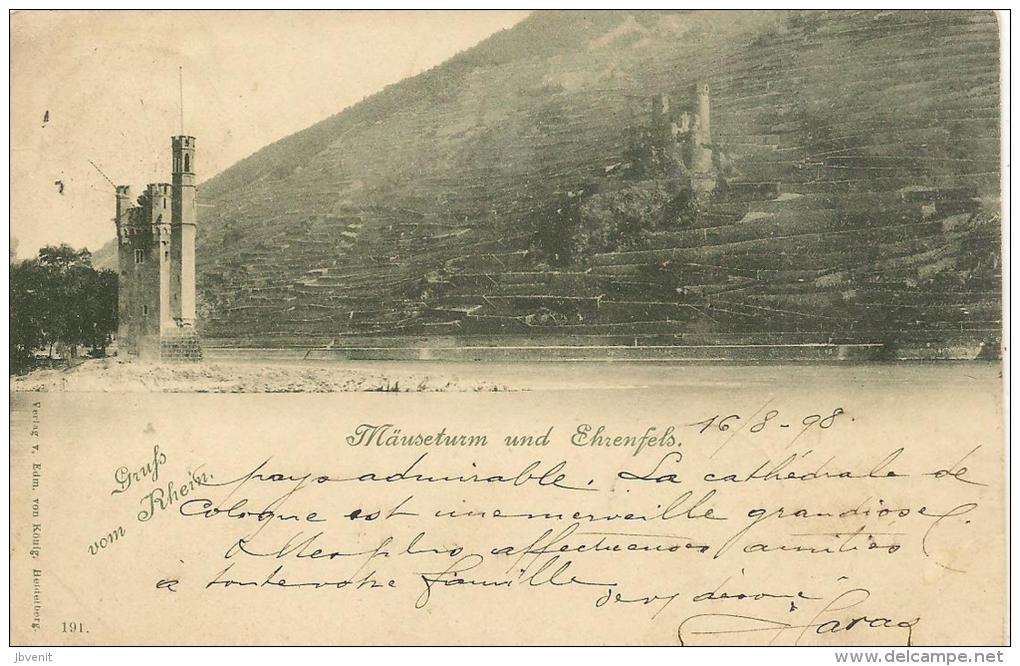 Mäuseturm und Ehrenfels.
16/8-98.
Gruss
vom Rhein.
pays admirable. La cathédrale de
Cologne est une merveille grandiose.
Mes plus affectueuses amitiés
à toute votre famille
Verlag v. Edm. von König, Heidelberg.
191.
jbvenit
www.delcampe.net